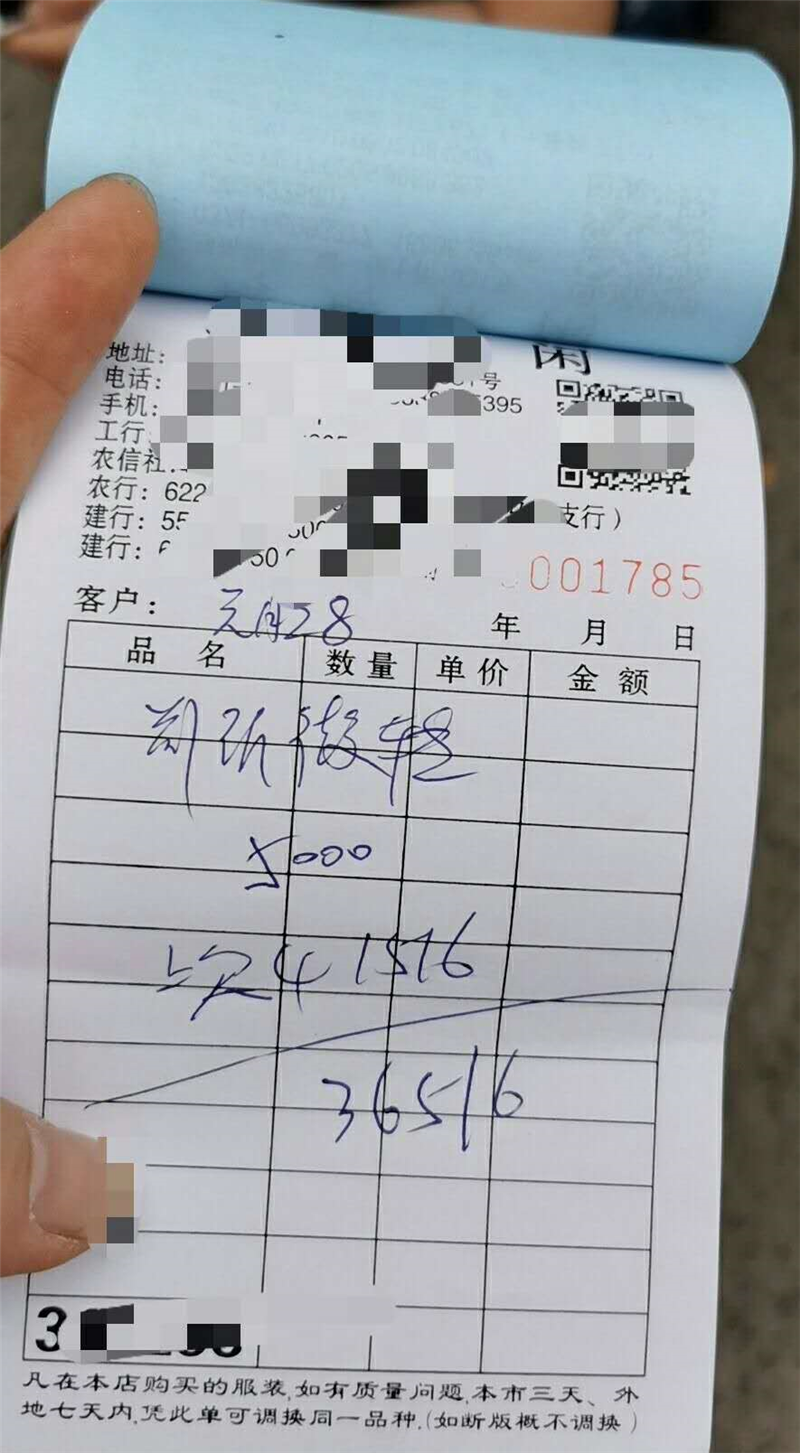 闲
地址:
电话: 号
手机: 395
工行
农信社
农行: 622
建行: 55 支行)
建行: 6
001785
客户: 元月28 年 月 日
品 名 数量 单价 金额
5000
上欠41516
36516
凡在本店购买的服装,如有质量问题,本市三天、外
地七天内,凭此单可调换同一品种.(如断版概不调换)